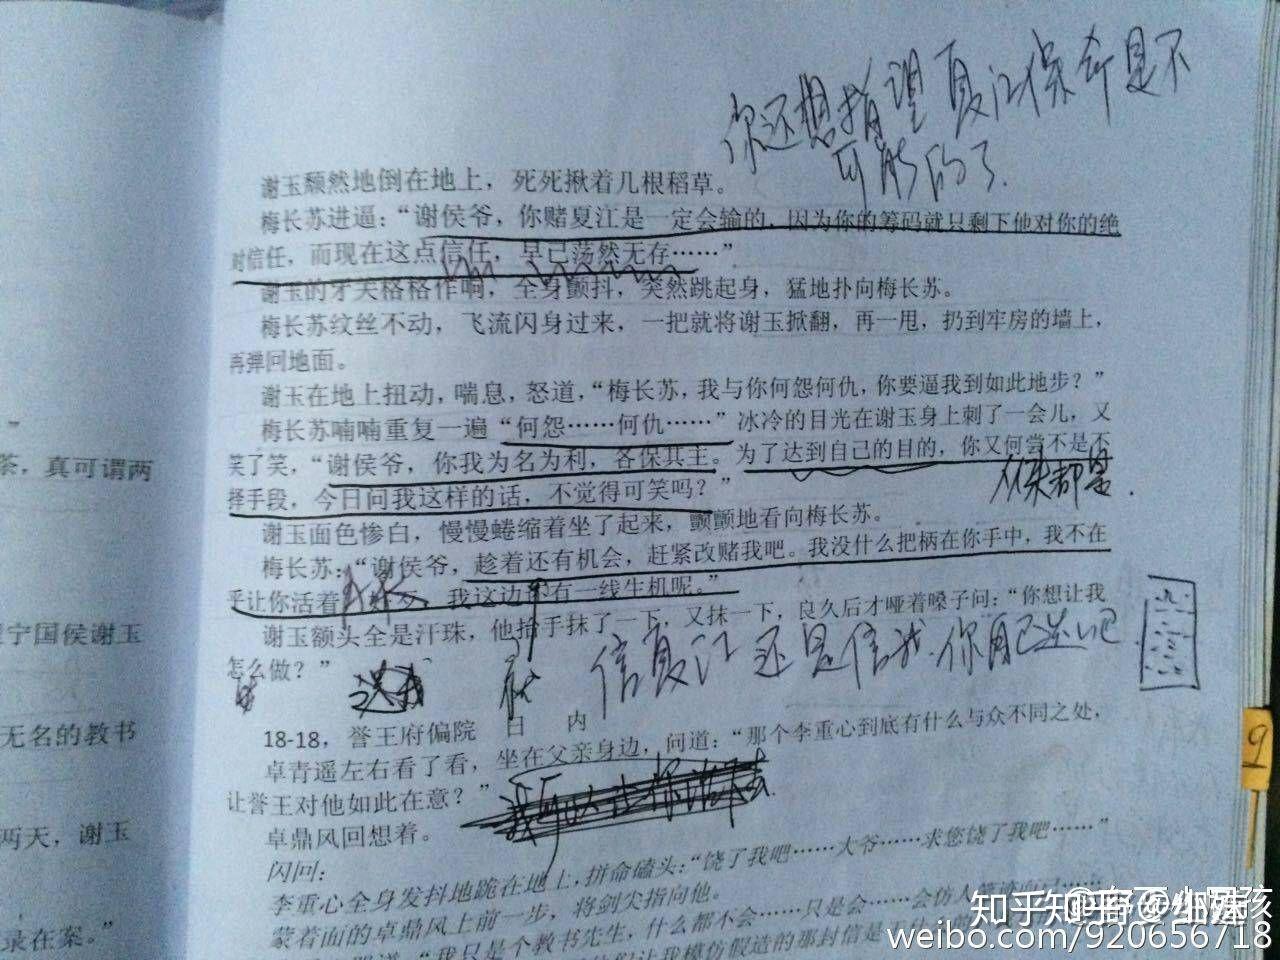 你还想指望夏江保命是不
可能的了.
谢玉颓然地倒在地上，死死揪着几根稻草。
梅长苏进逼：“谢侯爷，你赌夏江是一定会输的，因为你的筹码就只剩下他对你的绝
对信任，而现在这点信任，早已荡然无存……”
谢玉的牙关格格作响，全身颤抖，突然跳起身，猛地扑向梅长苏。
梅长苏纹丝不动，飞流闪身过来，一把就将谢玉掀翻，再一甩，扔到牢房的墙上，
再弹回地面。
谢玉在地上扭动，喘息，怒道，“梅长苏，我与你何怨何仇，你要逼我到如此地步？”
梅长苏喃喃重复一遍“何怨……何仇……”冰冷的目光在谢玉身上刺了一会儿，又
笑了笑，“谢侯爷，你我为名为利，各保其主。为了达到自己的目的，你又何尝不是不
择手段，今日问我这样的话，不觉得可笑吗？”
从来都是.
谢玉面色惨白，慢慢蜷缩着坐了起来，颤颤地看向梅长苏。
梅长苏：“谢侯爷，趁着还有机会，赶紧改赌我吧。我没什么把柄在你手中，我不在
乎让你活着，我这边还有一线生机呢。”
谢玉额头全是汗珠，他抬手抹了一下，又抹一下，良久后才哑着嗓子问：“你想让我
怎么做？”
信夏江还是信我.你自己选吧
18-18，誉王府偏院 日 内
卓青遥左右看了看，坐在父亲身边，问道：“那个李重心到底有什么与众不同之处，
让誉王对他如此在意？”
卓鼎风回想着。
闪回：
李重心全身发抖地跪在地上，拼命磕头：“饶了我吧……大爷……求您饶了我吧……”
蒙着面的卓鼎风上前一步，将剑尖指向他。
“我只是个教书先生，什么都不会……只是会……会仿人
让我模仿假造的那封信是
”
茶，真可谓两
宁国侯谢玉
无名的教书
两天，谢玉
录在案。”
9
知乎 @细婶
weibo.com/920656718